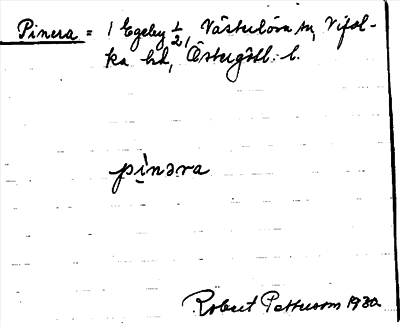 Pinera = 1 Egeby 1/2, Västerlösa sn, Vifol-
ka hd, Östergötl. l.
pinəra
Robert Pettersson 1930